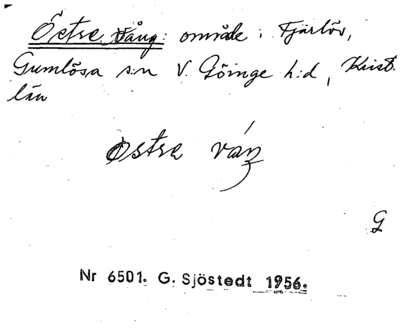 Östre vång: område i Fjärlöv,
Gumlösa s:n V. Göinge h:d, Krist.
län
östre váŋ
G
Nr 6501. G. Sjöstedt 1956.